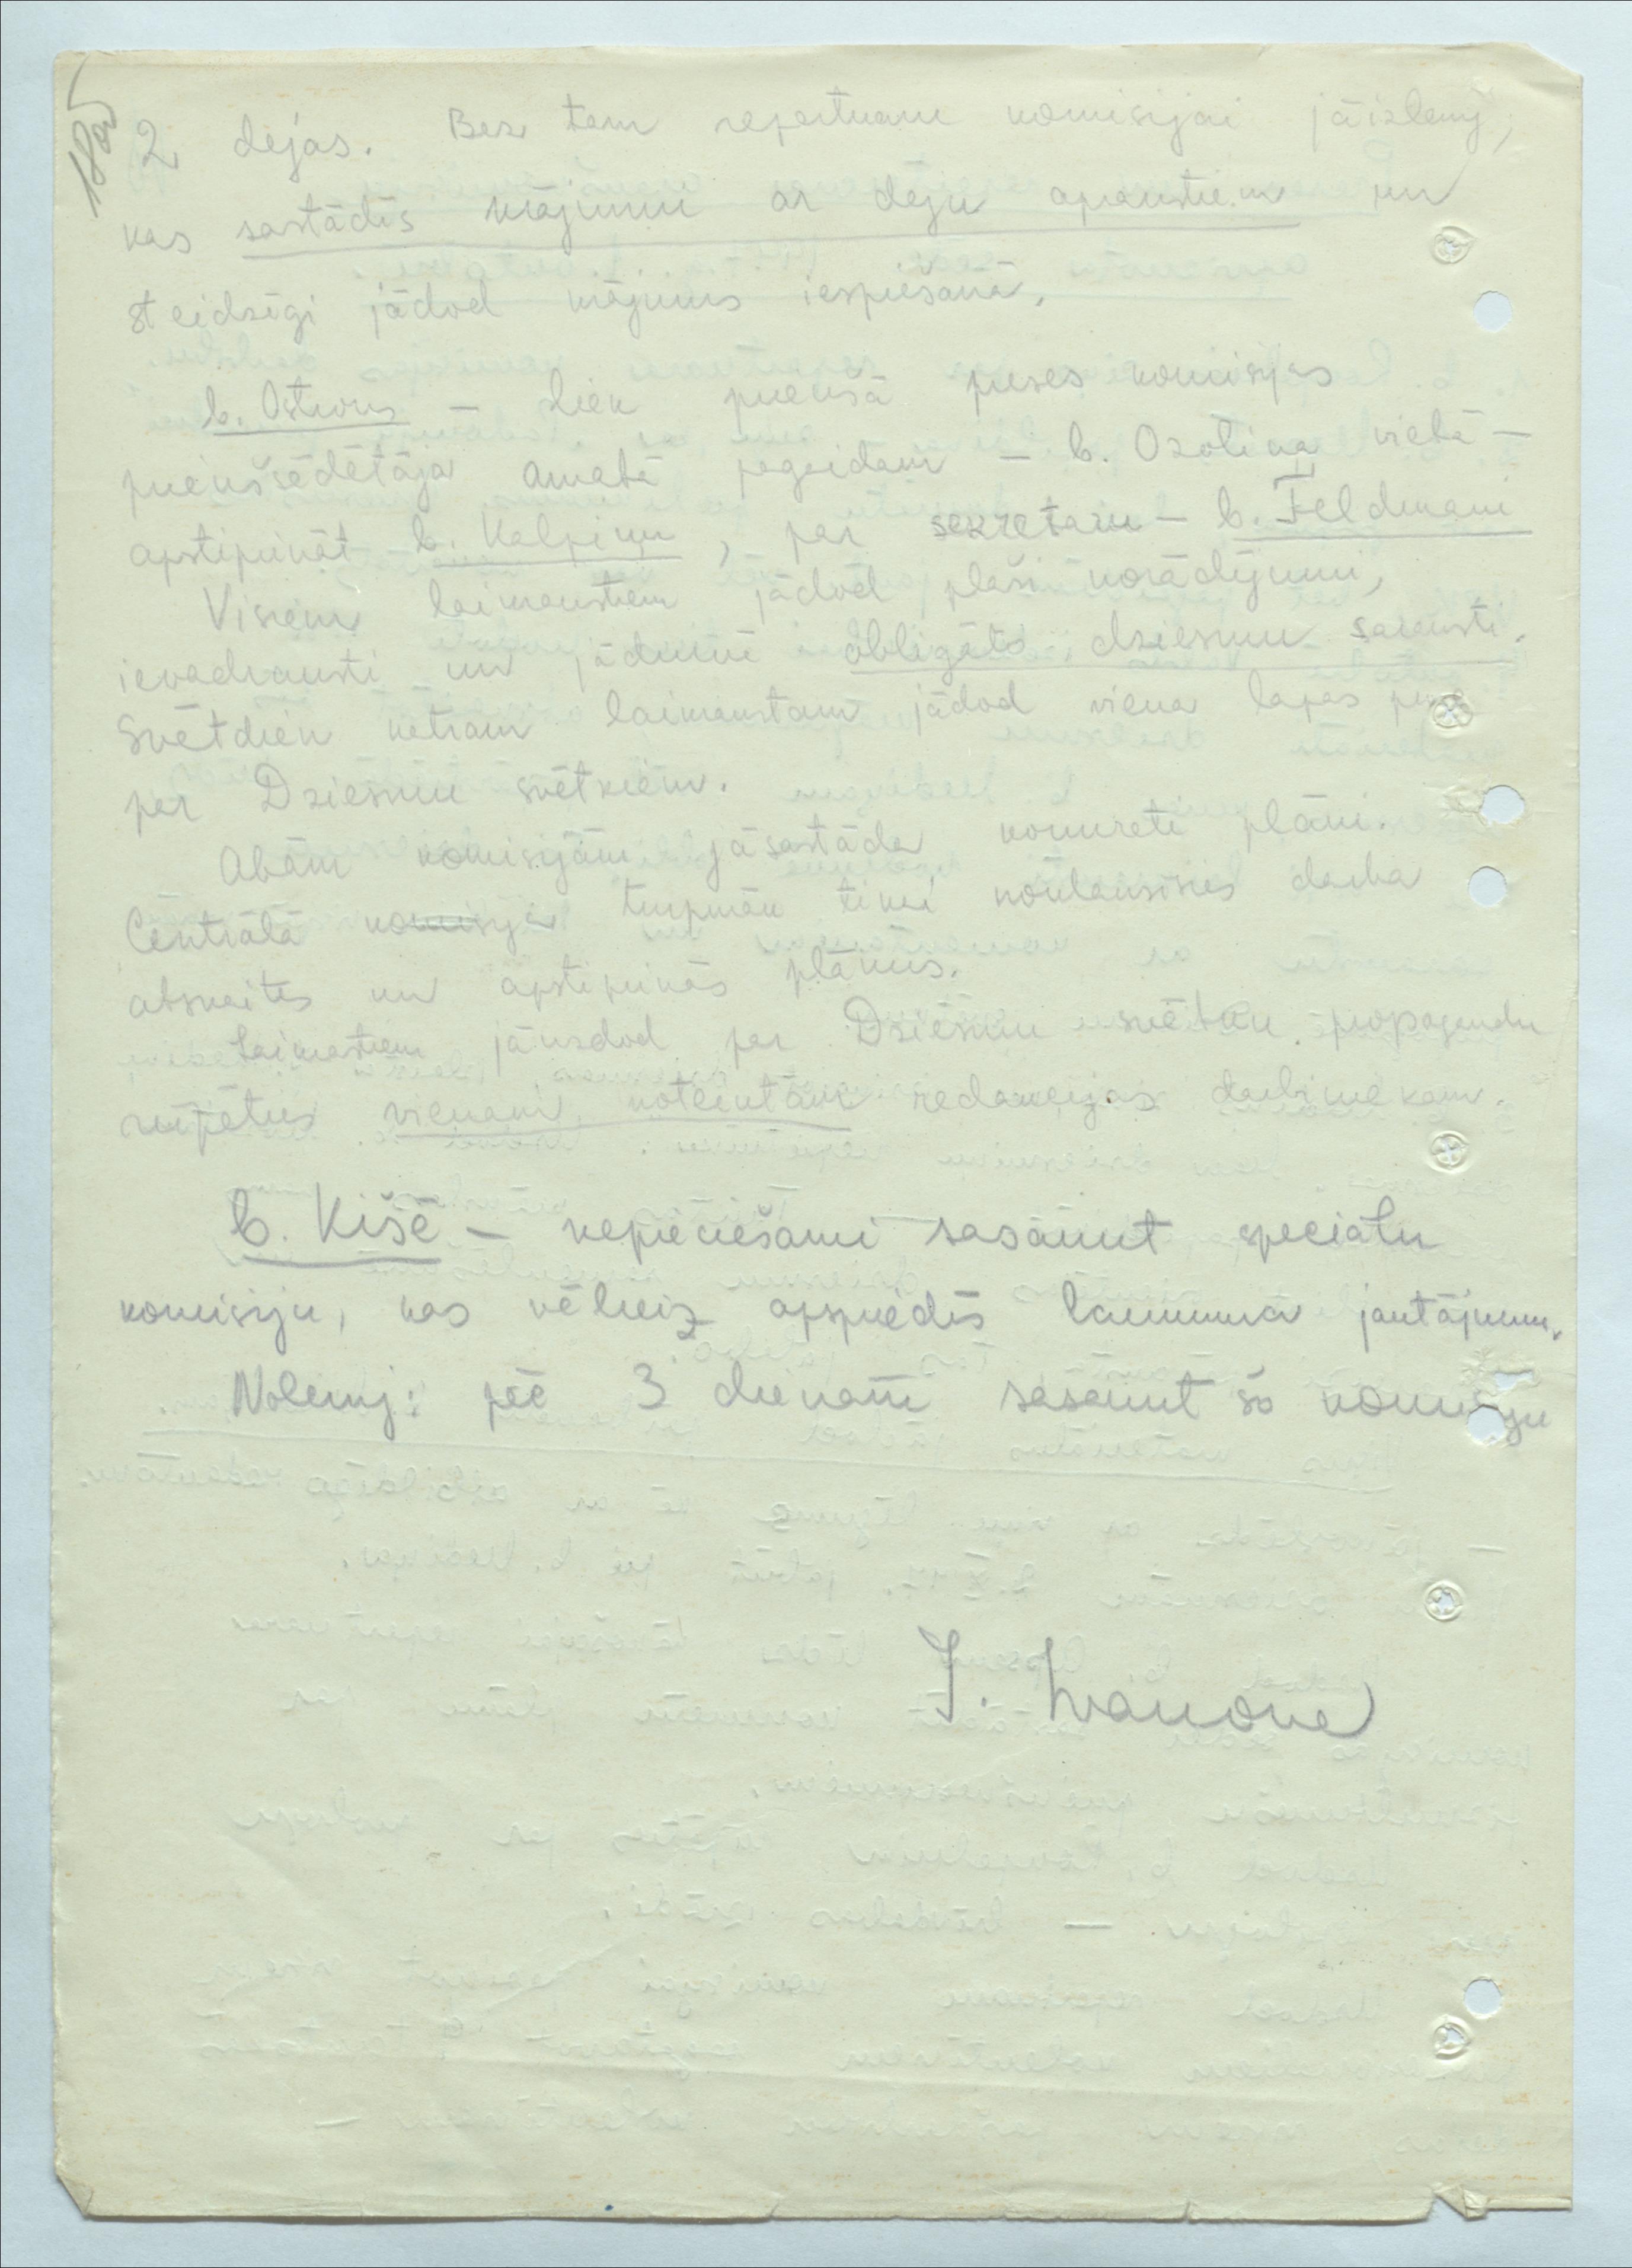 2 dejas. Bez tam repertuaru komisijai jāizlemj,
kas sastādīs krājumu ar deju aprakstiem un
steidzīgi jādod krājums iespiešanā.
b. Ostrovs – liek priekšā preses komisijas
priekšsēdētāja amatā pagaidam – b. Ozoliņa vietā –
apstiprināt b. Kalpiņu, par sekretaru – b. Feldmani
Visiem laikrakstiem jādod plaši norādījumi,
ievadraksti un jādrukā obligāto dziesmu saraksti.
Svētdien katram laikrakstam jādod viena lapas puse
par Dziesmu svētkiem.
Abām komisijām jāsastāda konkreti plāni.
Centrālā komisija turpmāk tikai noklausīsies darba
atskaites un apstiprinās plānus.
Laikrastiem jāuzdod par Dziesmu svētku propagandu
rūpēties vienam noteiktam redakcijas darbiniekam.
b. Kišē – nepieciešami sasaukt speciālu
komisiju, kas vēlreiz apspriedīs laukuma jautājumu.
Nolemj: pēc 3 dienām sasaukt šo komisiju
J. Ivanova